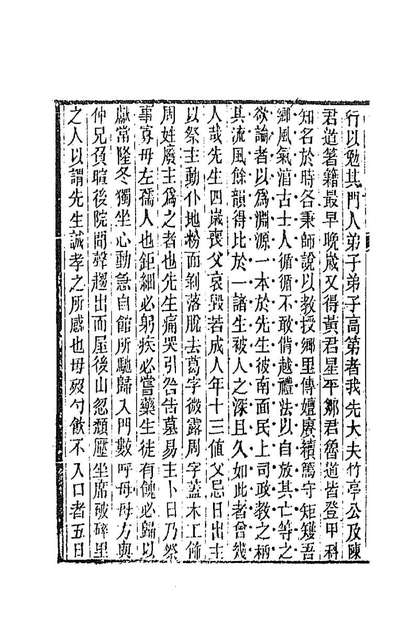 行以勉其門人弟子弟子高第者我先大夫竹亭公及陳
君道著籍最早晚歲又得黃君星平鄒君魯道皆登甲科
知名於時各秉師說以教授鄉里傳嬗賡續篤守矩矱吾
鄉風氣渻古士人循循不敢偭越禮法以自放其亡等之
欲論者以為淵源一本於先生彼南面民上司政教之柄
其流風餘韻得比於一諸生被人之深且久如此者曾幾
人哉先生四歲喪父哀毀若成人年十三値父忌日出主
以祭主動仆地粉面剝落脫去葛字微露周字蓋木工飾
周姓廢主為之者也先生痛哭引咎告墓易主卜日乃祭
事寡母左孺人也鉅細必躬疾必嘗藥生徒有餽必歸以
獻常隆冬獨坐心動急自館所馳歸入門數呼母母方與
仲兄負暄後院聞聲趨出而屋後山忽頹壓坐席破碎里
之人以謂先生誠孝之所感也母歿勺飲不入口者五日